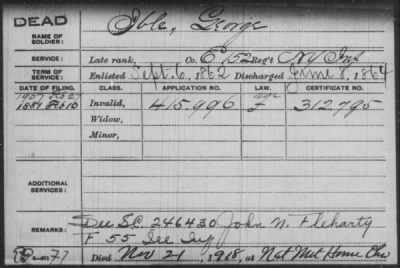 DEAD
Ible, George
NAME OF SOLDIER:
SERVICE: Late rank, Co. E, 152 Reg't NY Inf
TERM OF SERVICE: Enlisted Sept. 6, 1862 Discharged June 8, 1864
DATE OF FILING. CLASS. APPLICATION NO. LAW. CERTIFICATE NO.
1907 Feb 27 Age
1881 Feb 10 Invalid, 415,996 F 312,795
Widow,
Minor,
ADDITIONAL SERVICES:
REMARKS: See S.C. 246430 John N. Fleharty
F 55 Ill Inf
Died Nov 21, 1918, at Nat Met Home